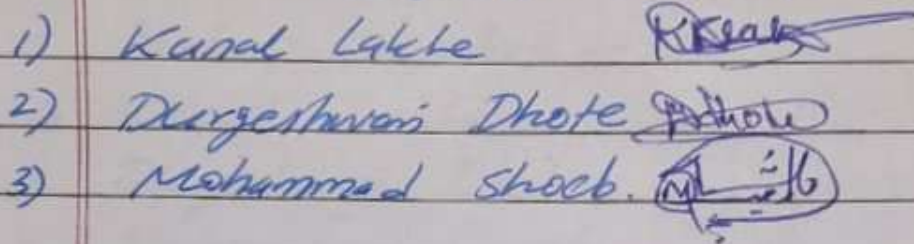 1) Kunal Lakhe
2) Durgeshwari Dhote
3) Mohammad Shoeb.